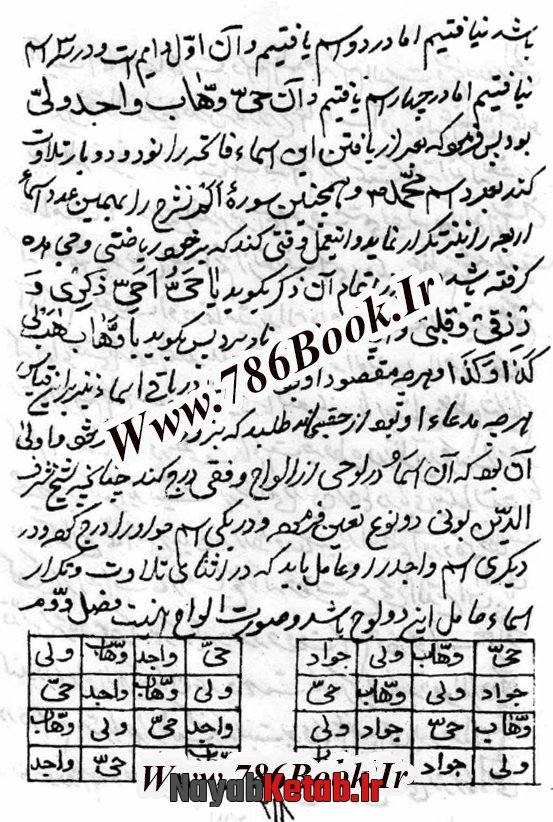 باشد نیافتیم اما در دو اسم یافتیم و آن اوّل و دایم است و در سه اسم
نیافتیم اما در چهار اسم یافتیم و آن حیّ وهّاب واجد ولیّ
بود پس فرموده که بعد از یافتن این اسماء فاتحه را نود و دو بار تلاوت
کند بعدد اسم محمّد و همچنین سورهٔ الم نشرح را بهمین عدد اسماء
اربعه را نیز تکرار نماید و اینعمل وقتی کند که برخی ریاضتی وجی
گرفته باشد اتمام آن ذکر بگوید یا حیّ احی ذکری و
رزقی و قلبی بگوید یا وهّاب هب لی
کذا و کذا و هر چه مقصود او در باقی اسماء نیز براین قیاس
هر چه مدعاء او بود از حقتعالی طلبد که و اولی
آن بود که آن اسماء در لوحی از الواح وفقی درج کند چنانچه شیخ شرف
الدّین بونی دو نوع تعین فرموده و در یکی اسم جواد را درج کرده و در
دیگری اسم واجد را و عامل باید که در اثنای تلاوت و تکرار
اسماء حامل این دو لوح باشد و صورت الواح اینست فصل دوّم
حیّ وهّاب ولی جواد
جواد ولی وهّاب حیّ
وهّاب حیّ جواد ولی
ولی جواد
حیّ واجد وهّاب ولی
ولی وهّاب واجد حیّ
واجد حیّ ولی وهّاب
حیّ واجد
Www.786Book.Ir
Www.786Book.Ir
NayabKetab.ir